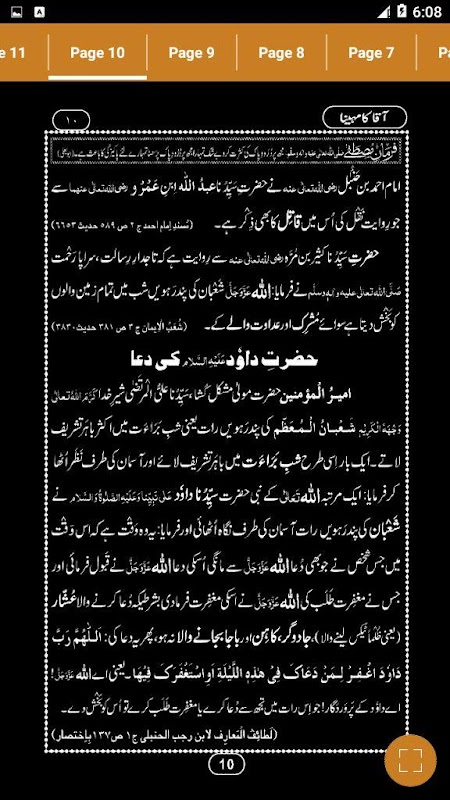 6:08
e 11 Page 10 Page 9 Page 8 Page 7 Pa
آقا کا مہینا
١٠
امام احمد بن حنبل رضی اللہ تعالٰی عنہ نے حضرتِ سیِّدُنا عبدُ اللّٰہ ابنِ عَمْرْو رضی اللہ تعالٰی عنہما سے
جو روایت نقْل کی اُس میں قاتِل کا بھی ذِکْر ہے۔ (مُسندِ امام احمد ج ٢ ص ٥٨٩ حدیث ٦٦٥٣)
حضرتِ سیِّدُنا کثیر بن مُرَّہ رضی اللہ تعالٰی عنہ سے روایت ہے کہ تاجدارِ رسالت، سراپا رَحْمت
صَلَّی اللہ تعالٰی علیہ واٰلہٖ وسلَّم نے فرمایا: اللّٰہ عَزَّوَجَلَّ شَعْبان کی پندرَہویں شب میں تمام زمین والوں
کو بَخْش دیتا ہے سوائے مُشْرِک اور عداوت والے کے۔ (شُعَبُ الْایمان ج ٣ ص ٣٨١ حدیث ٣٨٣٠)
حضرتِ داوٗد عَلَیْہِ السَّلَام کی دعا
امیرُ الْمؤمنین حضرت مولیٰ مشکل کُشا، سیِّدُنا علیُّ المُرتَضٰی شیرِ خدا کَرَّمَ اللہُ تعالٰی
وَجْہَہُ الْکَرِیْم شَعْبانُ الْمُعَظَّم کی پندرَہویں رات یعنی شبِ بَرَاءَت میں اکثر باہَر تشریف
لاتے۔ ایک بار اِسی طرح شبِ بَرَاءَت میں باہَر تشریف لائے اور آسمان کی طرف نَظَر اُٹھا
کر فرمایا: ایک مرتبہ اللّٰہ تَعَالٰی کے نبی حضرت سیِّدُنا داوٗد عَلٰی نَبِیِّنَا وَعَلَیْہِ الصَّلٰوۃُ وَالسَّلَام نے
شَعْبان کی پندرَہویں رات آسمان کی طرف نگاہ اُٹھائی اور فرمایا: یہ وہ وَقْت ہے کہ اس وَقْت
میں جس شخص نے جو بھی دُعا اللّٰہ عَزَّوَجَلَّ سے مانگی اُسکی دعا اللّٰہ عَزَّوَجَلَّ نے قَبول فرمائی اور
جس نے مغفِرت طَلَب کی اللّٰہ عَزَّوَجَلَّ نے اسکی مغفِرت فرما دی بشرطیکہ دُعا کرنے والا عُشّار
(یعنی ظُلْماً ٹیکس لینے والا)، جادوگر، کاہِن اور باجا بجانے والا نہ ہو، پھر یہ دعا کی: اَللّٰہُمَّ رَبَّ
دَاوٗدَ اغْفِرْ لِمَنْ دَعَاکَ فِیْ ہٰذِہِ اللَّیْلَۃِ اَوِ اسْتَغْفَرَکَ فِیْہَا۔ یعنی اے اللّٰہ عَزَّوَجَلَّ!
اے داوٗد کے پروردگار! جو اِس رات میں تجھ سے دُعا کرے یا مغفِرت طَلَب کرے تو اُس کو بَخْش دے۔
(لَطائِفُ الْمَعارِف لابن رجب الحنبلی ج ١ ص ١٣٧ بِاِختصار)
10